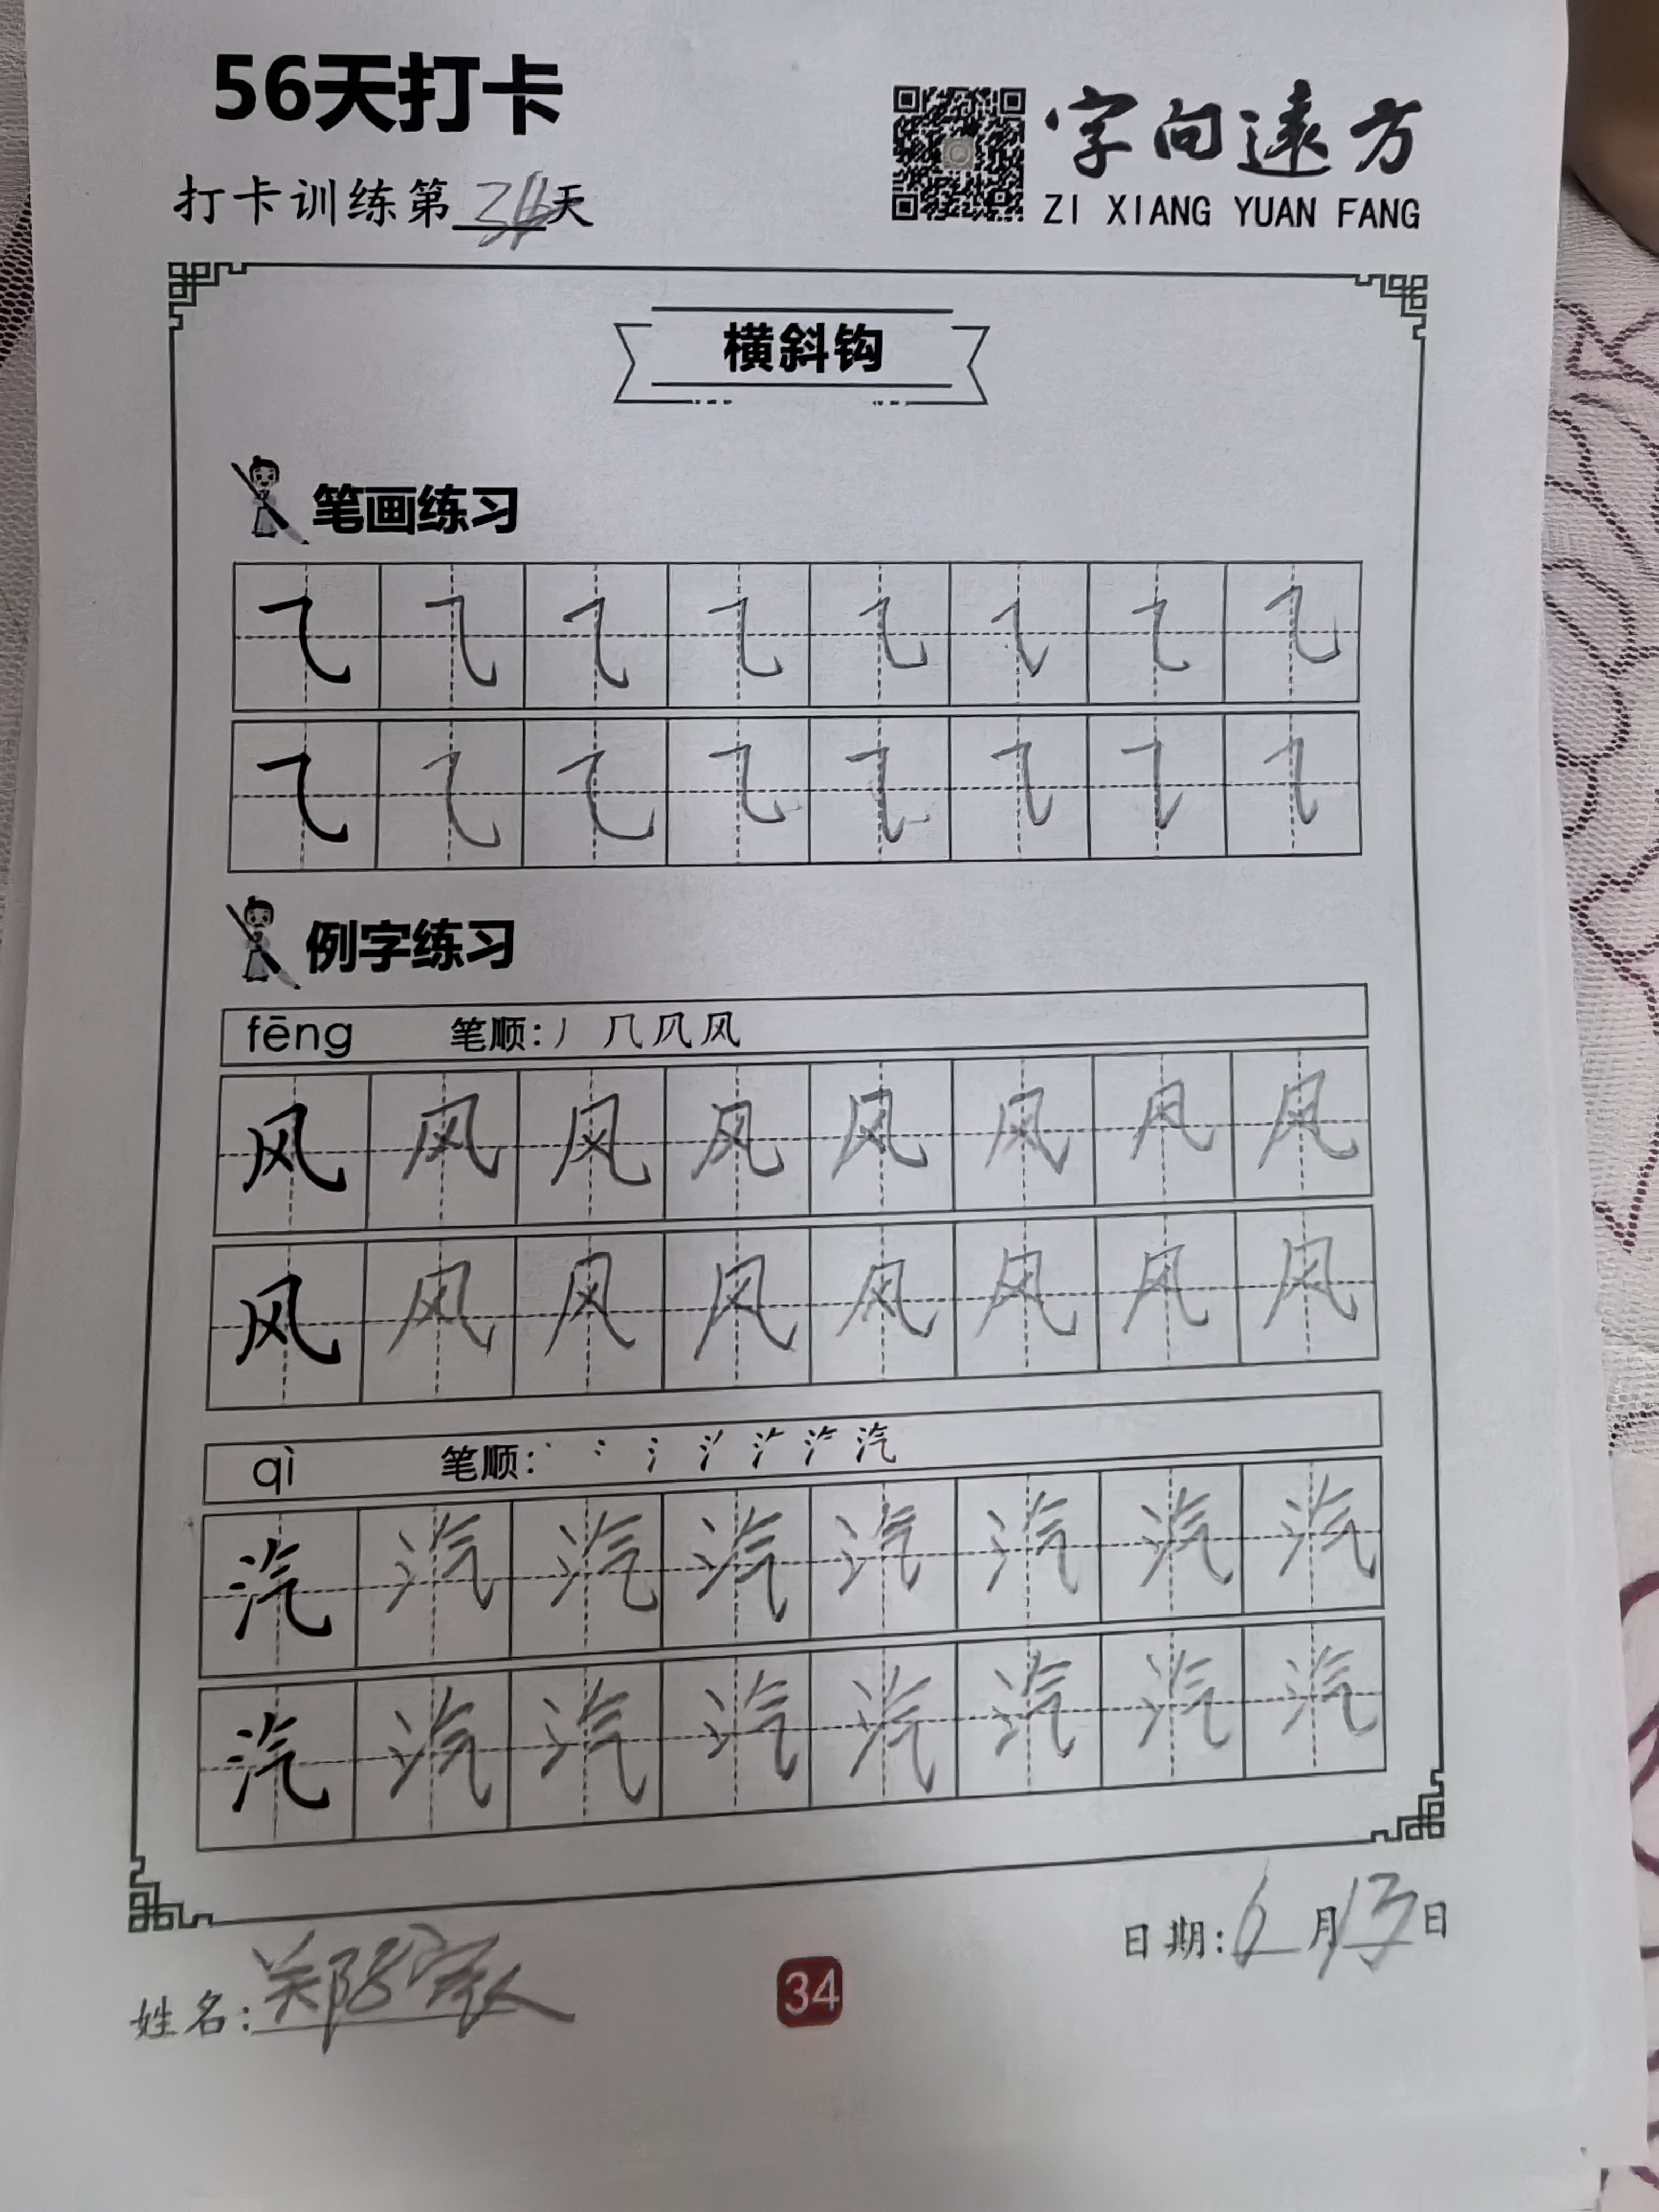 56天打卡
字向遠方
打卡训练第34天
ZI XIANG YUAN FANG
横斜钩
笔画练习
㇈ ㇈ ㇈ ㇈ ㇈ ㇈ ㇈ ㇈
㇈ ㇈ ㇈ ㇈ ㇈ ㇈ ㇈ ㇈
例字练习
fēng 笔顺: 丿 几 凨 风
风 风 风 风 风 风 风 风
风 风 风 风 风 风 风 风
qì 笔顺: 丶 冫 氵 汽
汽 汽 汽 汽 汽 汽 汽 汽
汽 汽 汽 汽 汽 汽 汽 汽
日期: 6月13日
姓名: 郑
34